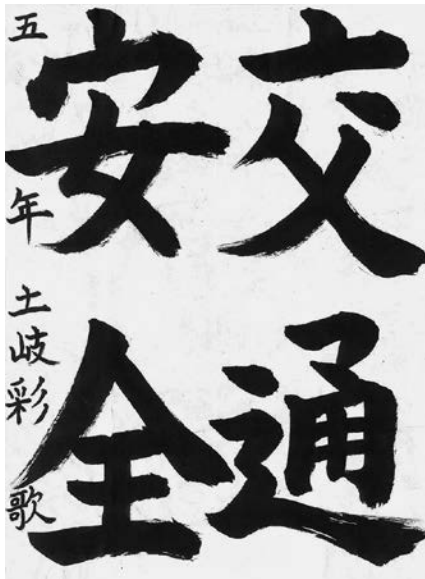 交通
安全
五年 土岐彩歌